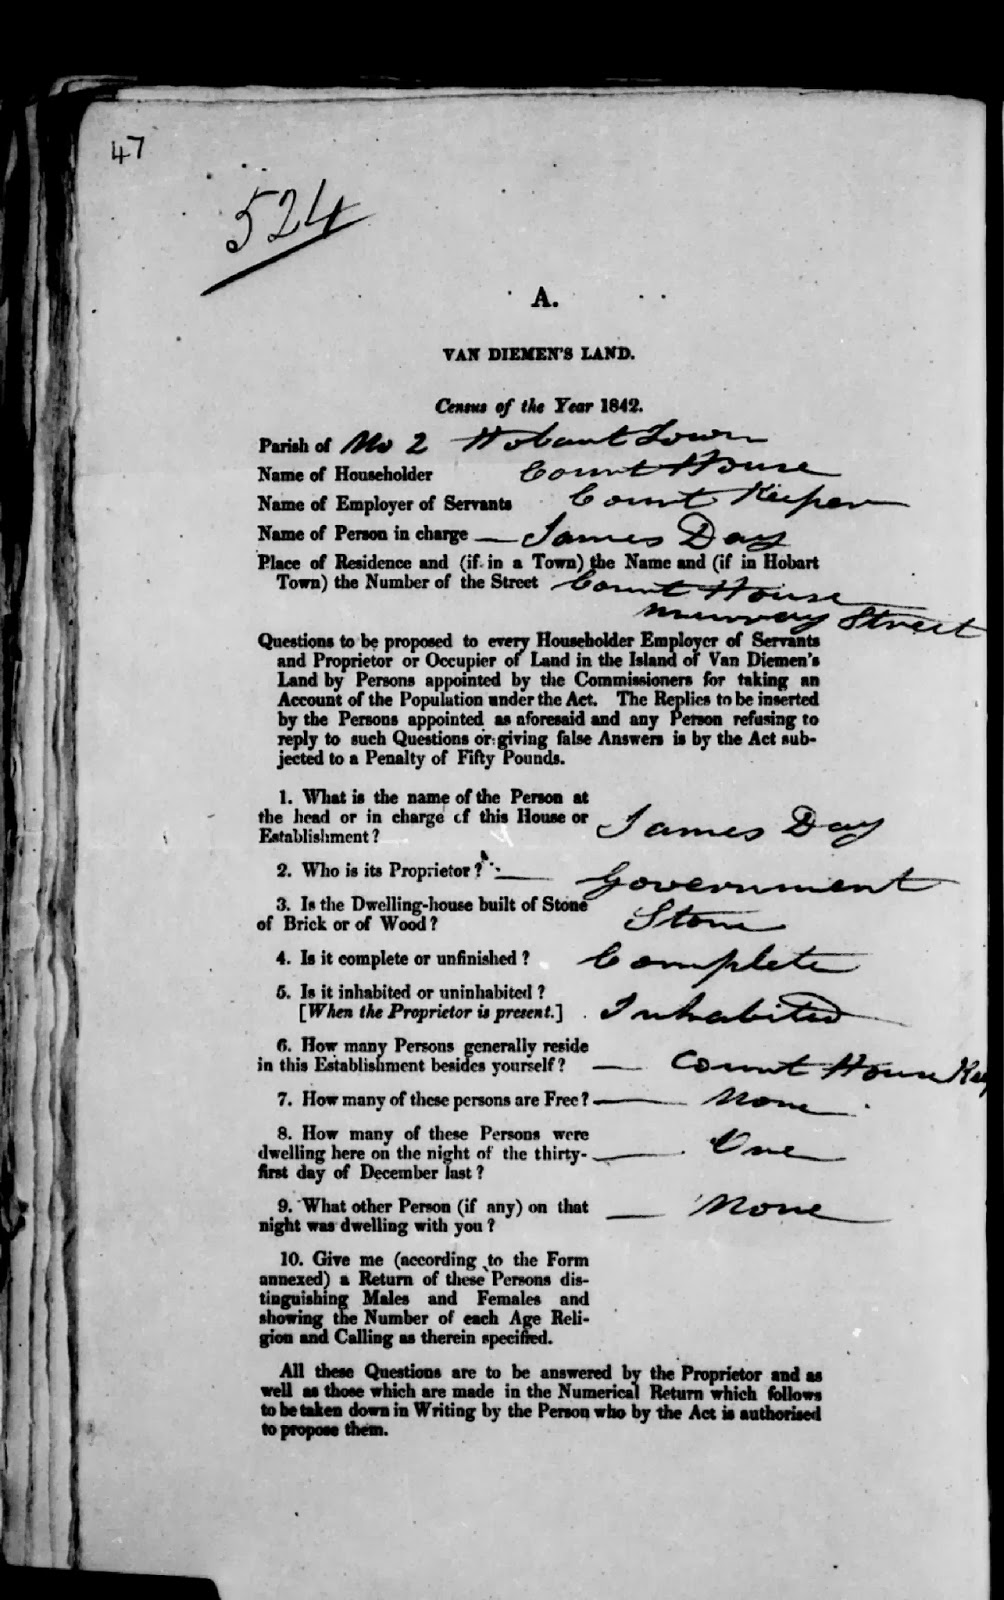 47
524
A.
VAN DIEMEN'S LAND.
Census of the Year 1842.
Parish of No 2 Hobart Town
Name of Householder Court House
Name of Employer of Servants Court Keeper
Name of Person in charge — James Day
Place of Residence and (if in a Town) the Name and (if in Hobart
Town) the Number of the Street Court House
Murray Street
Questions to be proposed to every Householder Employer of Servants
and Proprietor or Occupier of Land in the Island of Van Diemen's
Land by Persons appointed by the Commissioners for taking an
Account of the Population under the Act. The Replies to be inserted
by the Persons appointed as aforesaid and any Person refusing to
reply to such Questions or giving false Answers is by the Act sub-
jected to a Penalty of Fifty Pounds.
1. What is the name of the Person at
the head or in charge of this House or
Establishment? James Day
2. Who is its Proprietor? — Government
3. Is the Dwelling-house built of Stone
of Brick or of Wood? Stone
4. Is it complete or unfinished? Complete
5. Is it inhabited or uninhabited?
[When the Proprietor is present.] Inhabited
6. How many Persons generally reside
in this Establishment besides yourself? — Court House Kee
7. How many of these persons are Free? — None
8. How many of these Persons were
dwelling here on the night of the thirty- — One
first day of December last?
9. What other Person (if any) on that
night was dwelling with you? — None
10. Give me (according to the Form
annexed) a Return of these Persons dis-
tinguishing Males and Females and
showing the Number of each Age Reli-
gion and Calling as therein specified.
All these Questions are to be answered by the Proprietor and as
well as those which are made in the Numerical Return which follows
to be taken down in Writing by the Person who by the Act is authorised
to propose them.